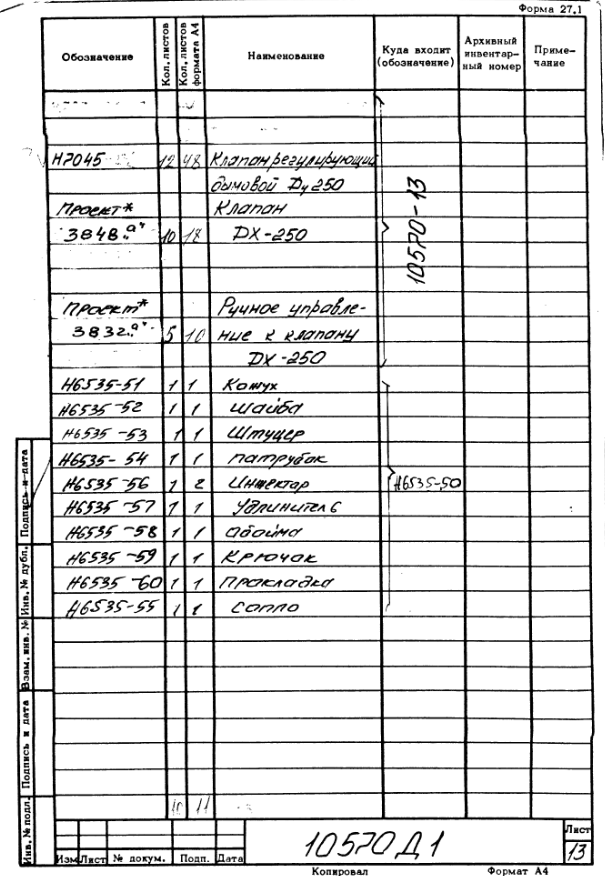 Форма 27.1
Обозначение | Кол. листов | Кол. листов формата А4 | Наименование | Куда входит (обозначение) | Архивный инвентарный номер | Примечание
Н7045 | 12 | 48 | Клапан регулирующий
дымовой Ду 250
Проект* | Клапан
3848 | 10 | 18 | DX-250
10570-13
Проект* | Ручное управле-
3832 | 5 | 10 | ние к клапану
DX-250
Н6535-51 | 1 | 1 | Кожух
Н6535-52 | 1 | 1 | Шайба
Н6535-53 | 1 | 1 | Штуцер
Н6535-54 | 1 | 1 | Патрубок
Н6535-56 | 1 | 2 | Инжектор | Н6535-50
Н6535-57 | 1 | 1 | Удлинитель
Н6535-58 | 1 | 1 | Обойма
Н6535-59 | 1 | 1 | Крючок
Н6535-60 | 1 | 1 | Прокладка
Н6535-55 | 1 | 1 | Сопло
10 | 11
Подпись и дата
Инв. № дубл.
Взам. инв. №
Подпись и дата
Инв. № подл.
Изм | Лист | № докум. | Подп. | Дата
10570 Д1
Лист
13
Копировал
Формат А4